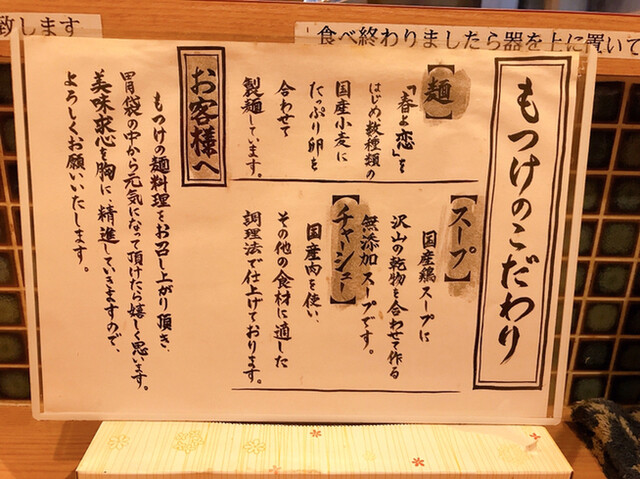 致します
食べ終わりましたら器を上に置いて
もつけのこだわり
【麺】
「春よ恋」を
はじめ数種類の
国産小麦に
たっぷり卵を
合わせて
製麺しています。
【スープ】
国産鶏スープに
沢山の乾物を合わせて作る
無添加スープです。
【チャーシュー】
国産肉を使い、
その他の食材に適した
調理法で仕上げております。
お客様へ
もつけの麺料理をお召し上がり頂き、
胃袋の中から元気になって頂けたら嬉しく思います。
美味求心を胸に、精進していきますので、
よろしくお願いいたします。